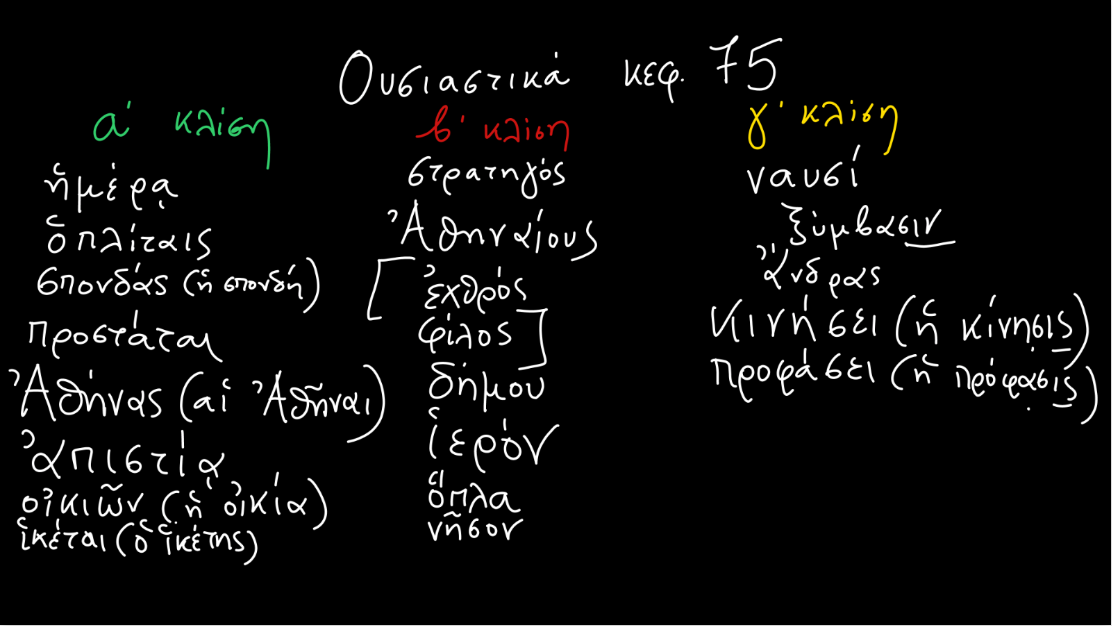 Ουσιαστικά κεφ. 75
α' κλίση
ἡμέρᾳ
ὁπλίταις
σπονδάς (ἡ σπονδή)
προστάται
Ἀθήνας (αἱ Ἀθῆναι)
ἀπιστίᾳ
οἰκιῶν (ἡ οἰκία)
ἱκέται (ὁ ἱκέτης)
β' κλίση
στρατηγός
Ἀθηναίους
[ἐχθρός
φίλος]
δήμου
ἱερόν
ὅπλα
νῆσον
γ' κλίση
ναυσί
ξύμβασιν
ἄνδρας
κινήσει (ἡ κίνησις)
προφάσει (ἡ πρόφασις)